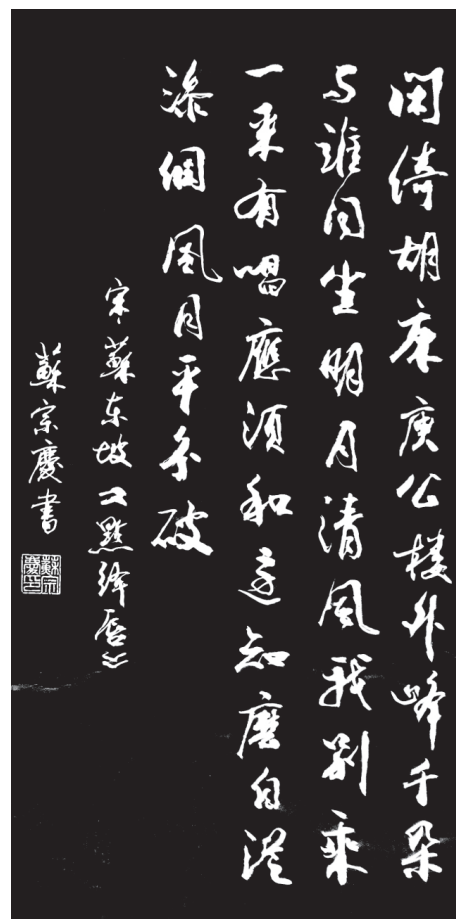 閑綺胡床庾公楼外峰千朵
与誰同坐明月清風我別乘
一来有唱應須和還知麼自從
添個風月平分破
宋·蘇东坡《點绛唇》
蘇宗慶書
蘇宗慶印